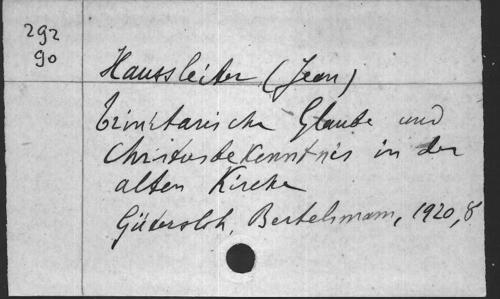 292
90
Haussleiter (Jean)
Trinitarische Glaube und
Christusbekenntnis in der
alten Kirche
Gütersloh, Bertelsmann, 1920, 8